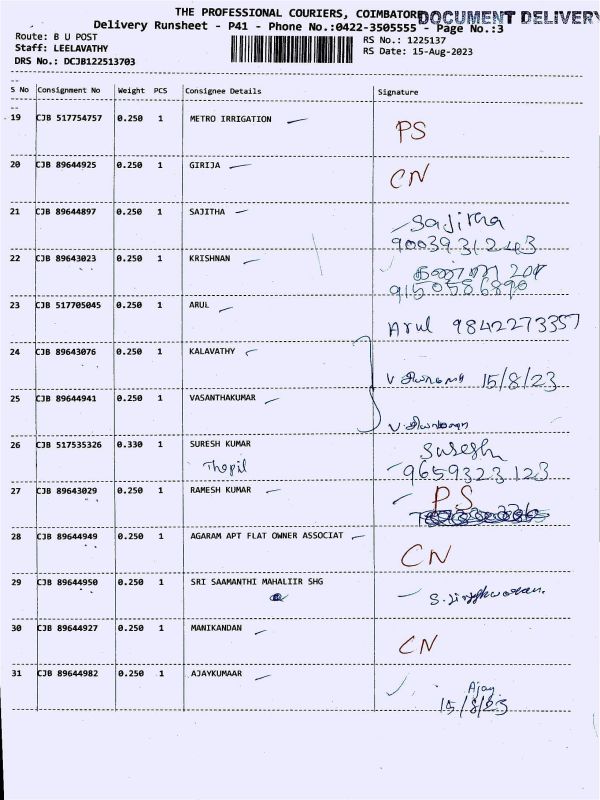 THE PROFESSIONAL COURIERS, COIMBATORE
DOCUMENT DELIVERY
Delivery Runsheet - P41 - Phone No.:0422-3505555 - Page No.:3
Route: B U POST
RS No.: 1225137
Staff: LEELAVATHY
RS Date: 15-Aug-2023
DRS No.: DCJB122513703
S No Consignment No Weight PCS Consignee Details Signature
19 CJB 517754757 0.250 1 METRO IRRIGATION PS
20 CJB 89644925 0.250 1 GIRIJA CN
21 CJB 89644897 0.250 1 SAJITHA Sajitha
90039 31243
22 CJB 89643023 0.250 1 KRISHNAN
9150586890
23 CJB 517705045 0.250 1 ARUL Arul 9842273357
24 CJB 89643076 0.250 1 KALAVATHY V 15/8/23
25 CJB 89644941 0.250 1 VASANTHAKUMAR V.
26 CJB 517535326 0.330 1 SURESH KUMAR Suresh
9659323123
27 CJB 89643029 0.250 1 RAMESH KUMAR PS
28 CJB 89644949 0.250 1 AGARAM APT FLAT OWNER ASSOCIAT CN
29 CJB 89644950 0.250 1 SRI SAAMANTHI MAHALIIR SHG
30 CJB 89644927 0.250 1 MANIKANDAN CN
31 CJB 89644982 0.250 1 AJAYKUMAAR Ajay
15/8/23